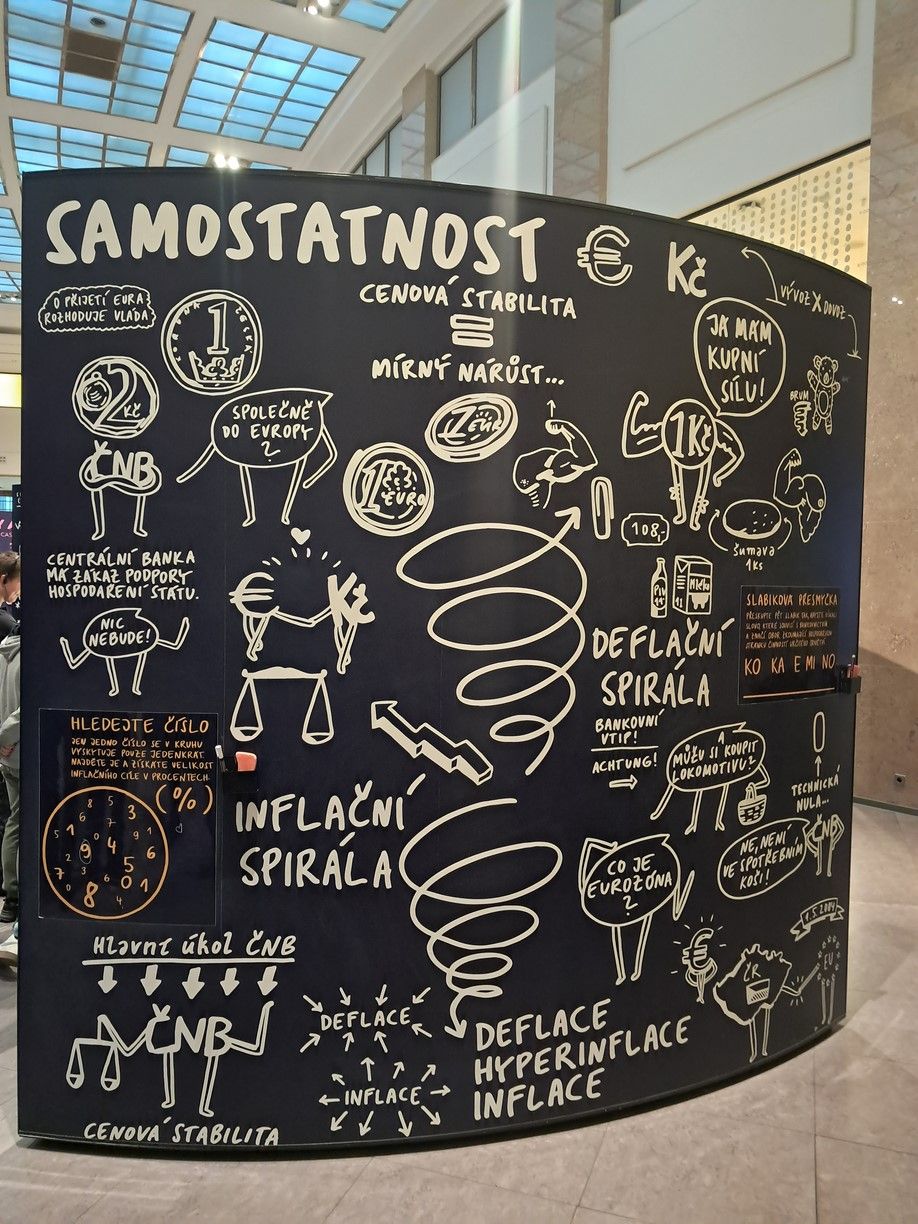 SAMOSTATNOST € Kč
O PŘIJETÍ EURA
ROZHODUJE VLÁDA
1
2 Kč
ČNB
SPOLEČNĚ
DO EVROPY
?
CENOVÁ STABILITA
=
MÍRNÝ NÁRŮST...
VÝVOZ X DOVOZ
JÁ MÁM
KUPNÍ
SÍLU!
BRUM
1Kč
1 EURO
108,-
šumava
1ks
CENTRÁLNÍ BANKA
MÁ ZÁKAZ PODPORY
HOSPODAŘENÍ STÁTU.
NIC
NEBUDE!
€ Kč
Pivo
Mléko
DEFLAČNÍ
SPIRÁLA
SLABIKOVÁ PŘESMYČKA
KO KA E MI NO
BANKOVNÍ
VTIP!
ACHTUNG!
MŮŽU SI KOUPIT
LOKOMOTIVU?
TECHNICKÁ
NULA...
NE, NENÍ
VE SPOTŘEBNÍM
KOŠI!
ČNB
HLEDEJTE ČÍSLO
JEN JEDNO ČÍSLO SE V KRUHU
VYSKYTUJE POUZE JEDENKRÁT.
NAJDĚTE JE A ZÍSKÁTE VELIKOST
INFLAČNÍHO CÍLE V PROCENTECH.
(%)
INFLAČNÍ
SPIRÁLA
CO JE
EUROZÓNA
?
1.5.2004
€
ČR
EU
Hlavní úkol ČNB
ČNB
CENOVÁ STABILITA
DEFLACE
INFLACE
DEFLACE
HYPERINFLACE
INFLACE